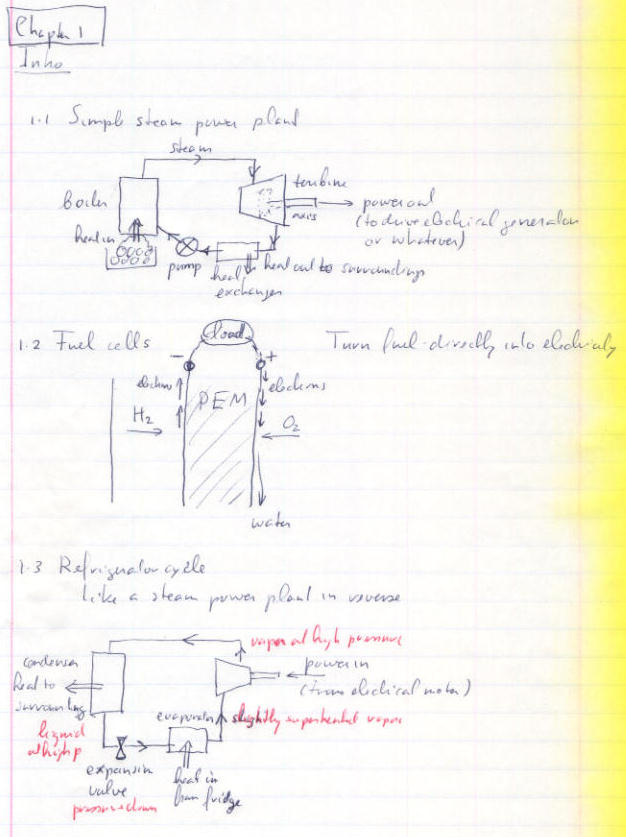 Chapter 1
Intro
1.1 Simple steam power plant
steam
turbine
boiler
power out
axis
(to drive electrical generator
or whatever)
heat in
pump
heat out to surroundings
heat
exchanger
1.2 Fuel cells
load
Turn fuel directly into electricity
- +
electrons
electrons
PEM
H2
O2
water
1.3 Refrigerator cycle
Like a steam power plant in reverse
vapor at high pressure
condenser
power in
heat to
(from electrical motor)
surroundings
evaporator
slightly superheated vapor
liquid
at high p
expansion
valve
heat in
from fridge
pressure down